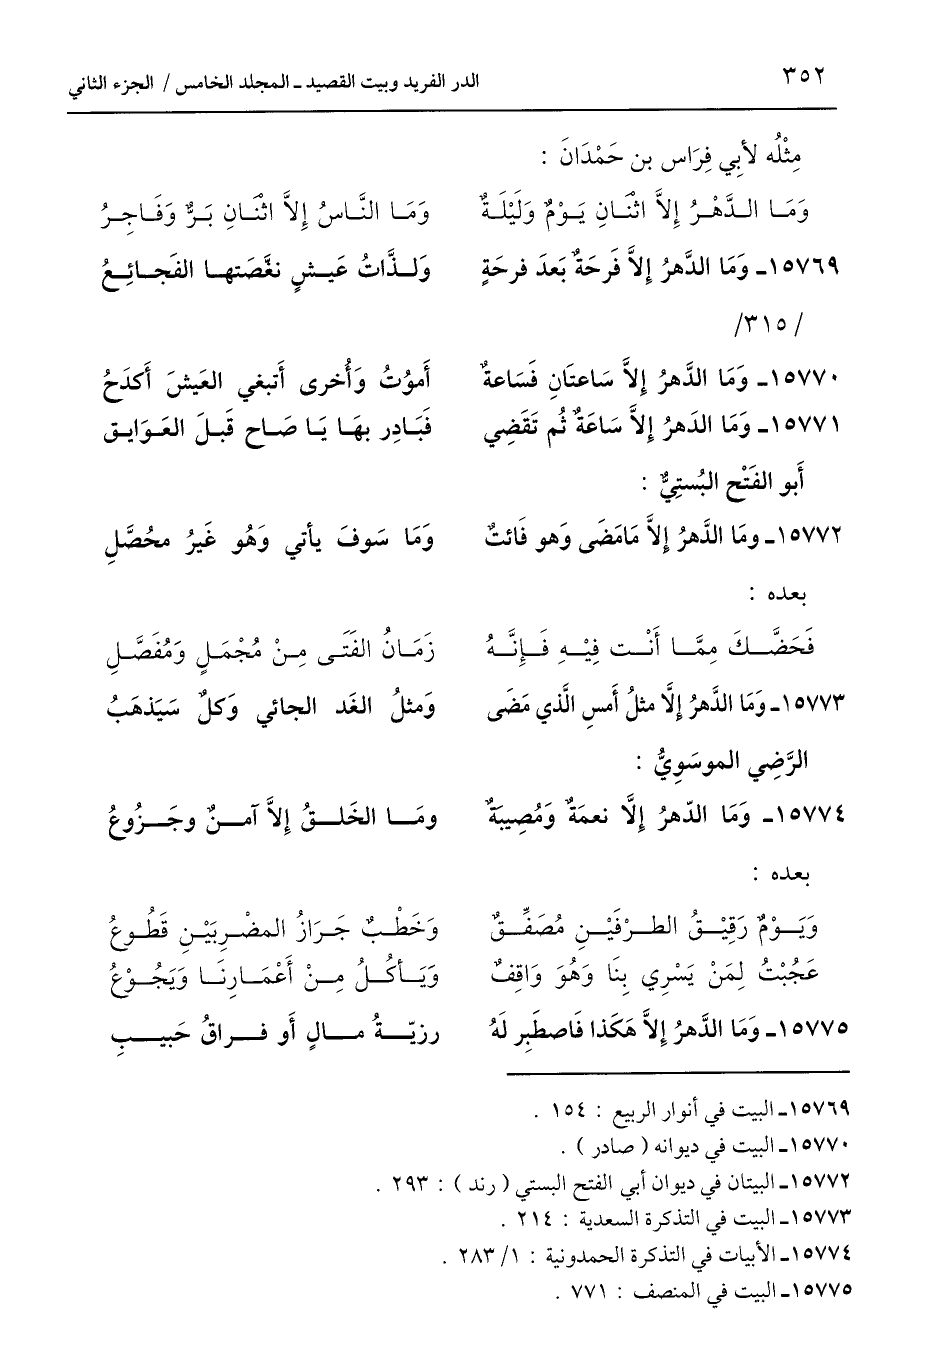 ٣٥٢ الدر الفريد وبيت القصيد ـ المجلد الخامس / الجزء الثاني
مِثْلُه لأبي فِرَاس بن حَمْدَانَ :
وَمَا الدَّهْرُ إِلاَّ اثْنَانِ يَوْمٌ وَلَيْلَةٌ وَمَا النَّاسُ إِلاَّ اثْنَانِ بَرٌّ وَفَاجِرُ
١٥٧٦٩ـ وَمَا الدَّهرُ إِلاَّ فَرحَةٌ بَعدَ فرحَةٍ وَلذَّاتُ عَيشٍ نغَّصَتها الفَجائِعُ
/٣١٥/
١٥٧٧٠ـ وَمَا الدَّهرُ إِلاَّ سَاعتَانِ فَسَاعةٌ أَموُتُ وَأُخرى أَتبغي العَيشَ أَكدَحُ
١٥٧٧١ـ وَمَا الدَهرُ إِلاَّ سَاعَةٌ ثُم تَقَضِي فَبَادِر بهَا يَا صَاح قَبلَ العَوَايق
أَبو الفَتْح البُستِيٌّ :
١٥٧٧٢ـ ومَا الدَّهرُ إِلاَّ مَامَضَى وَهو فَائتٌ وَمَا سَوفَ يأتي وَهُو غَيرُ محُصَّلِ
بعده :
فَحَضَّكَ مِمَّا أَنْت فِيْهِ فَإِنَّهُ زَمَانُ الفَتَى مِنْ مُجْمَلٍ وَمُفَصَّلِ
١٥٧٧٣ـ وَمَا الدَّهرُ إِلَّا مثلُ أَمسِ الَّذي مَضَى وَمثلُ الغَد الجائي وَكلٌ سَيَذهَبُ
الرَّضِي الموسَوِيُّ :
١٥٧٧٤ـ وَمَا الدّهرُ إِلَّا نعمَةٌ وَمُصِيبَةٌ ومَا الخَلقُ إِلاَّ آمنٌ وجَزُوعُ
بعده :
وَيَوْمٌ رَقِيْقُ الطرْفَيْنِ مُصَفِّقٌ وَخَطْبٌ جَرَازُ المضْرِبَيْنِ قَطُوعُ
عَجُبْتُ لِمَنْ يَسْرِي بِنَا وَهُوَ وَاقِفٌ وَيَأْكُلُ مِنْ أَعْمَارِنَا وَيَجُوْعُ
١٥٧٧٥ـ وَمَا الدَّهرُ إِلاَّ هَكَذا فَاصطَبِر لَهُ رزيّةُ مالٍ أَو فراقُ حَبيبِ
١٥٧٦٩ـ البيت في أنوار الربيع : ١٥٤ .
١٥٧٧٠ـ البيت في ديوانه ( صادر ) .
١٥٧٧٢ـ البيتان في ديوان أبي الفتح البستي ( رند ) : ٢٩٣ .
١٥٧٧٣ـ البيت في التذكرة السعدية : ٢١٤ .
١٥٧٧٤ـ الأبيات في التذكرة الحمدونية : ١/ ٢٨٣ .
١٥٧٧٥ـ البيت في المنصف : ٧٧١ .